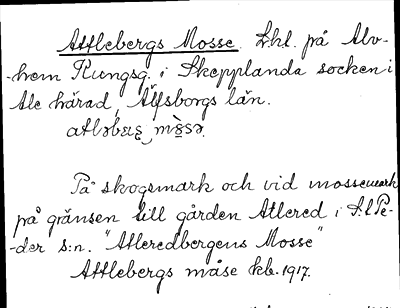 Attlebergs Mosse. Lhl. på Alv-
-hem Kungsg. i Skepplanda socken i
Ale härad, Älfsborgs län.
På skogsmark och vid mossemark
på gränsen till gården Atlered i S:t Pe-
-der s:n. "Atleredbergens Mosse"
Attlebergs måse kb. 1917.